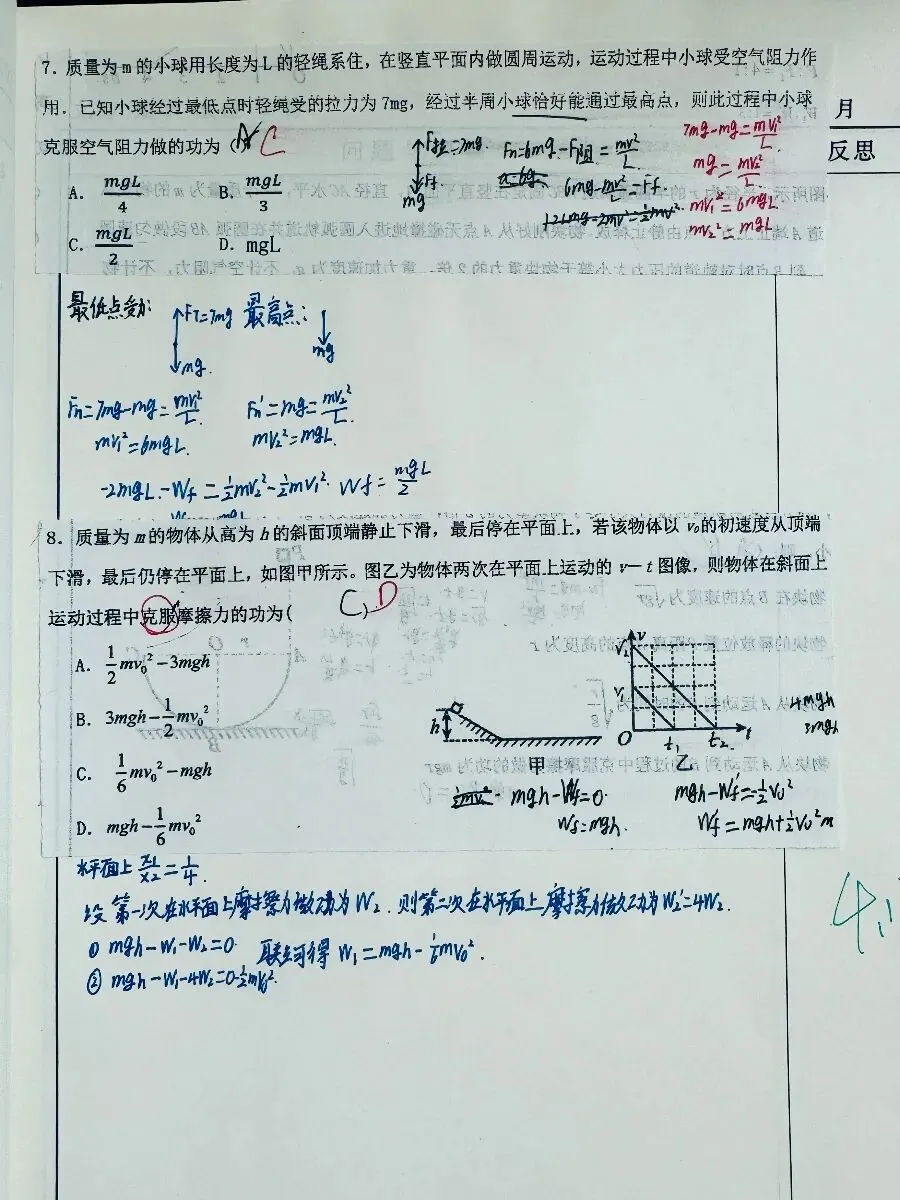 7. 质量为 m 的小球用长度为 L 的轻绳系住，在竖直平面内做圆周运动，运动过程中小球受空气阻力作
用．已知小球经过最低点时轻绳受的拉力为 7mg，经过半周小球恰好能通过最高点，则此过程中小球
克服空气阻力做的功为（A）C
A. mgL/4 B. mgL/3
C. mgL/2 D. mgL
F拉=7mg.
mg
Fn=6mg-F阻=mv²/L
a=6g.
6mg-mv²/L=Ff.
7mg-mg=mv₁²/L
mg=mv₂²/L
mv₁²=6mgL
mv₂²=mgL
月
反思
最低点受力: FT=7mg 最高点:
mg. mg
Fn=7mg-mg=mv₁²/L. Fn'=mg=mv₂²/L.
mv₁²=6mgL. mv₂²=mgL.
-2mgL-Wf=½mv₂²-½mv₁². Wf=mgL/2
8. 质量为 m 的物体从高为 h 的斜面顶端静止下滑，最后停在平面上，若该物体以 v₀的初速度从顶端
下滑，最后仍停在平面上，如图甲所示。图乙为物体两次在平面上运动的 v—t 图像，则物体在斜面上
运动过程中克服摩擦力的功为( C )D
A. 1/2 mv₀²－3mgh
B. 3mgh－1/2 mv₀²
C. 1/6 mv₀²－mgh
D. mgh－1/6 mv₀²
h
甲
v
v₁'
v₁
O t₁ t₂ t
乙
4mgh
3mgh
½mv² - mgh-Wf=0.
Wf=mgh.
mgh-Wf'=-½v₀²
Wf'=mgh+½v₀²m
水平面上 x₁/x₂=1/4.
设第一次在水平面上摩擦力做功为W₂. 则第二次在水平面上摩擦力做功为W₂'=4W₂.
① mgh-W₁-W₂=0. 联立可得 W₁=mgh-⅙mv₀².
② mgh-W₁-4W₂=0-½mv₀².